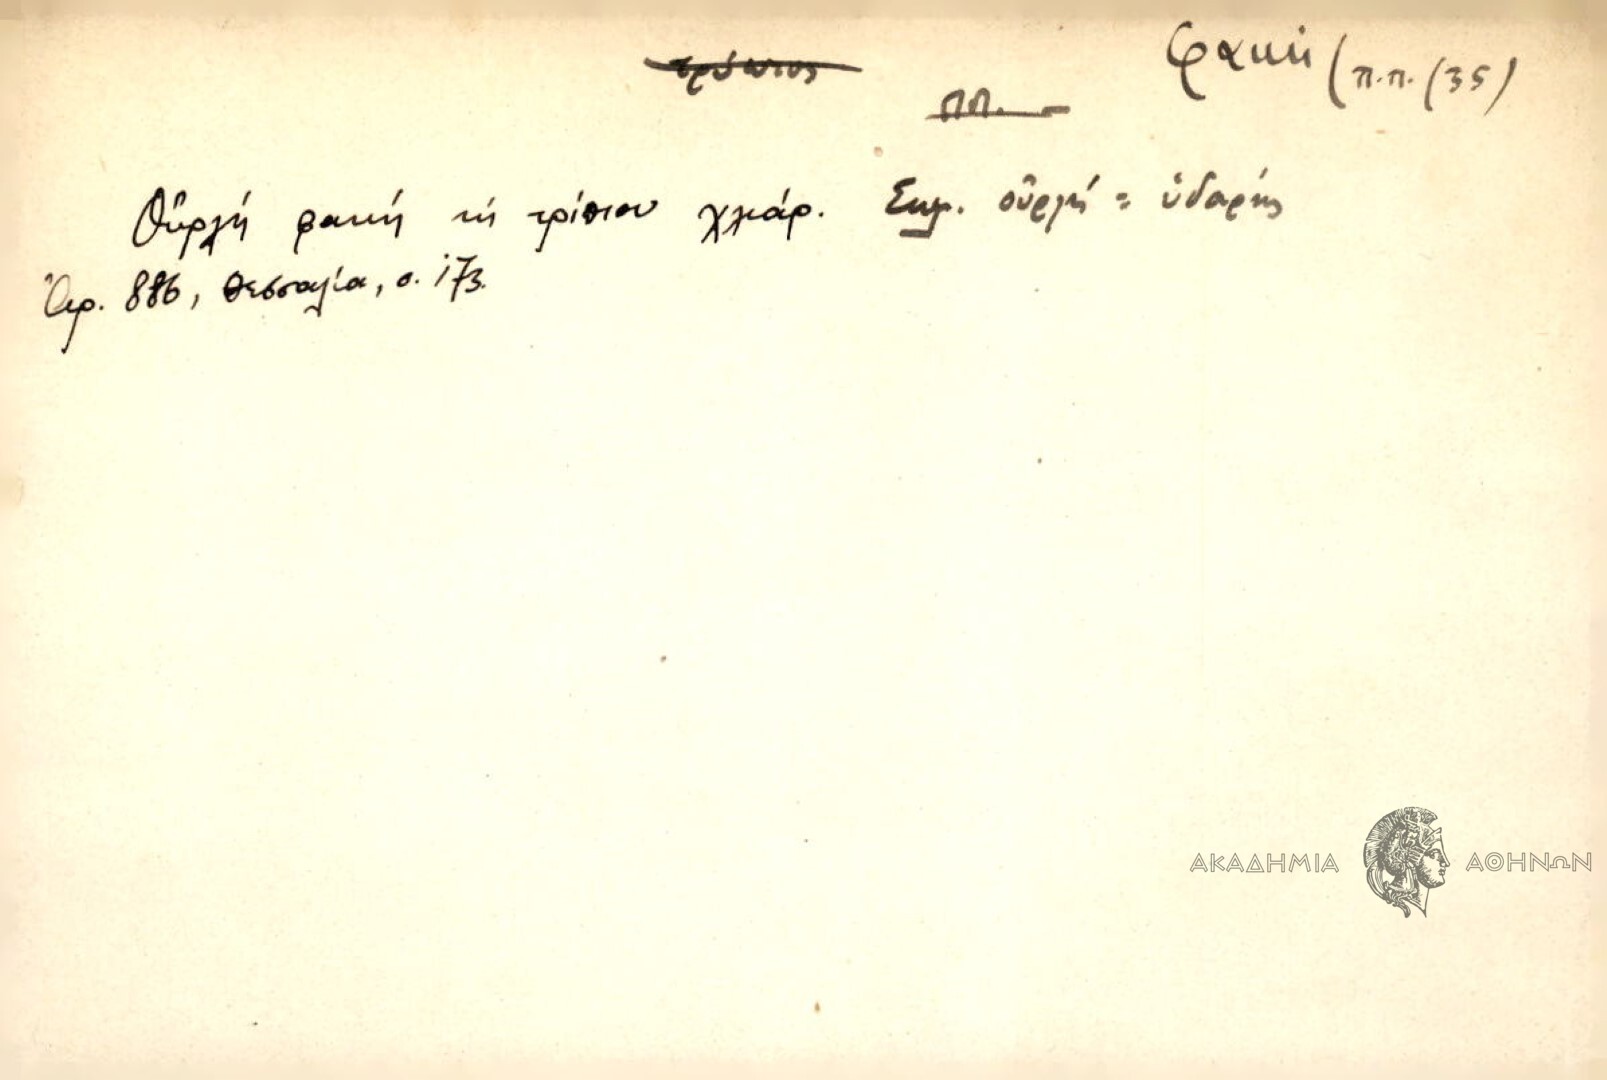 τρύπιος
Π.Π.
φακή (π.π. (35)
Οὑρλή φακή κὴ τρύπιου χλιάρ. Σημ. οὑρλή = ὑδαρής
Ἀρ. 886, Θεσσαλία, σ. 173.
ΑΚΑΔΗΜΙΑ ΑΘΗΝΩΝ